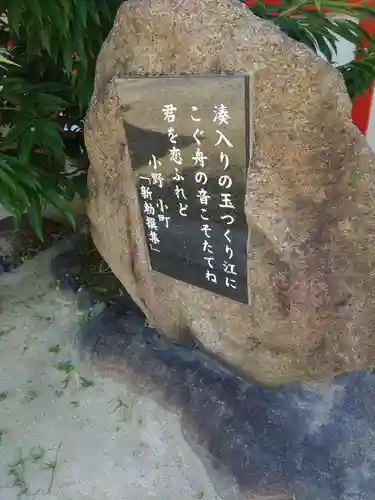 湊入りの玉つくり江に
こぐ舟の音こそたてね
君を恋ふれど
小野 小町
「新勅撰集」